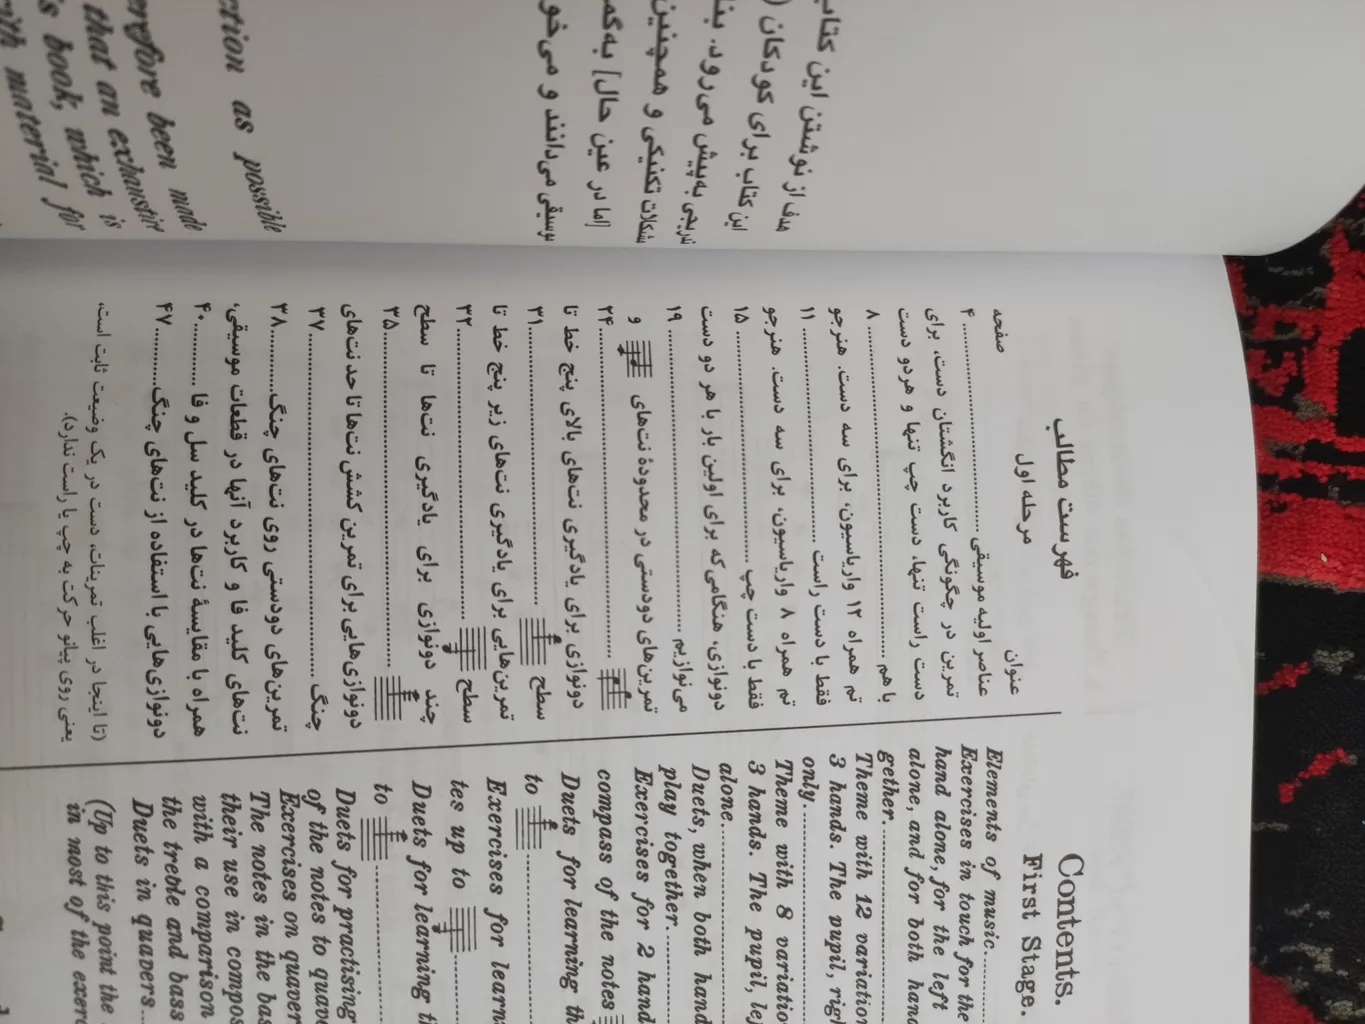 هدف از نوشتن این کتاب
این کتاب برای کودکان (
تدریجی به‌پیش می‌رود. بنا
شکلات تکنیکی و همچنین
[اما در عین حال] به‌گم
موسیقی می‌دانند و می‌خو
ction as possible
erefore been made
that an exhaustive
s book, which is
with material for
فهرست مطالب
مرحله اول
عنوان
صفحه
عناصر اولیه موسیقی ۴
تمرین در چگونگی کاربرد انگشتان دست، برای
دست راست تنها، دست چپ تنها و هردو دست
با هم ۸
تم همراه ۱۲ واریاسیون، برای سه دست. هنرجو
فقط با دست راست ۱۱
تم همراه ۸ واریاسیون، برای سه دست. هنرجو
فقط با دست چپ ۱۵
دونوازی، هنگامی‌که برای اولین بار با هر دو دست
می‌نوازیم ۱۹
تمرین‌های دودستی در محدودهٔ نت‌های و
۲۴
دونوازی برای یادگیری نت‌های بالای پنج خط تا
سطح ۳۱
تمرین‌هایی برای یادگیری نت‌های زیر پنج خط تا
سطح ۳۲
چند دونوازی برای یادگیری نت‌ها تا سطح
۳۵
دونوازی‌هایی برای تمرین کشش نت‌ها تا حد نت‌های
چنگ ۳۷
تمرین‌های دودستی روی نت‌های چنگ ۳۸
نت‌های کلید فا و کاربرد آنها در قطعات موسیقی،
همراه با مقایسهٔ نت‌ها در کلید سل و فا ۴۰
دونوازی‌هایی با استفاده از نت‌های چنگ ۴۷
(تا اینجا در اغلب تمرینات، دست در یک وضعیت ثابت است،
یعنی روی پیانو حرکت به چپ یا راست ندارد).
Contents.
First Stage.
Elements of music.
Exercises in touch for the
hand alone, for the left
alone, and for both hand
gether.
Theme with 12 variation
3 hands. The pupil, righ
only.
Theme with 8 variatio
3 hands. The pupil, lef
alone.
Duets, when both hand
play together.
Exercises for 2 hand
compass of the notes
Duets for learning th
to
Exercises for learni
tes up to
Duets for learning th
to
Duets for practising
of the notes to quave
Exercises on quaver
The notes in the bas
their use in compos
with a comparison
the treble and bass
Duets in quavers
(Up to this point the
in most of the exerc